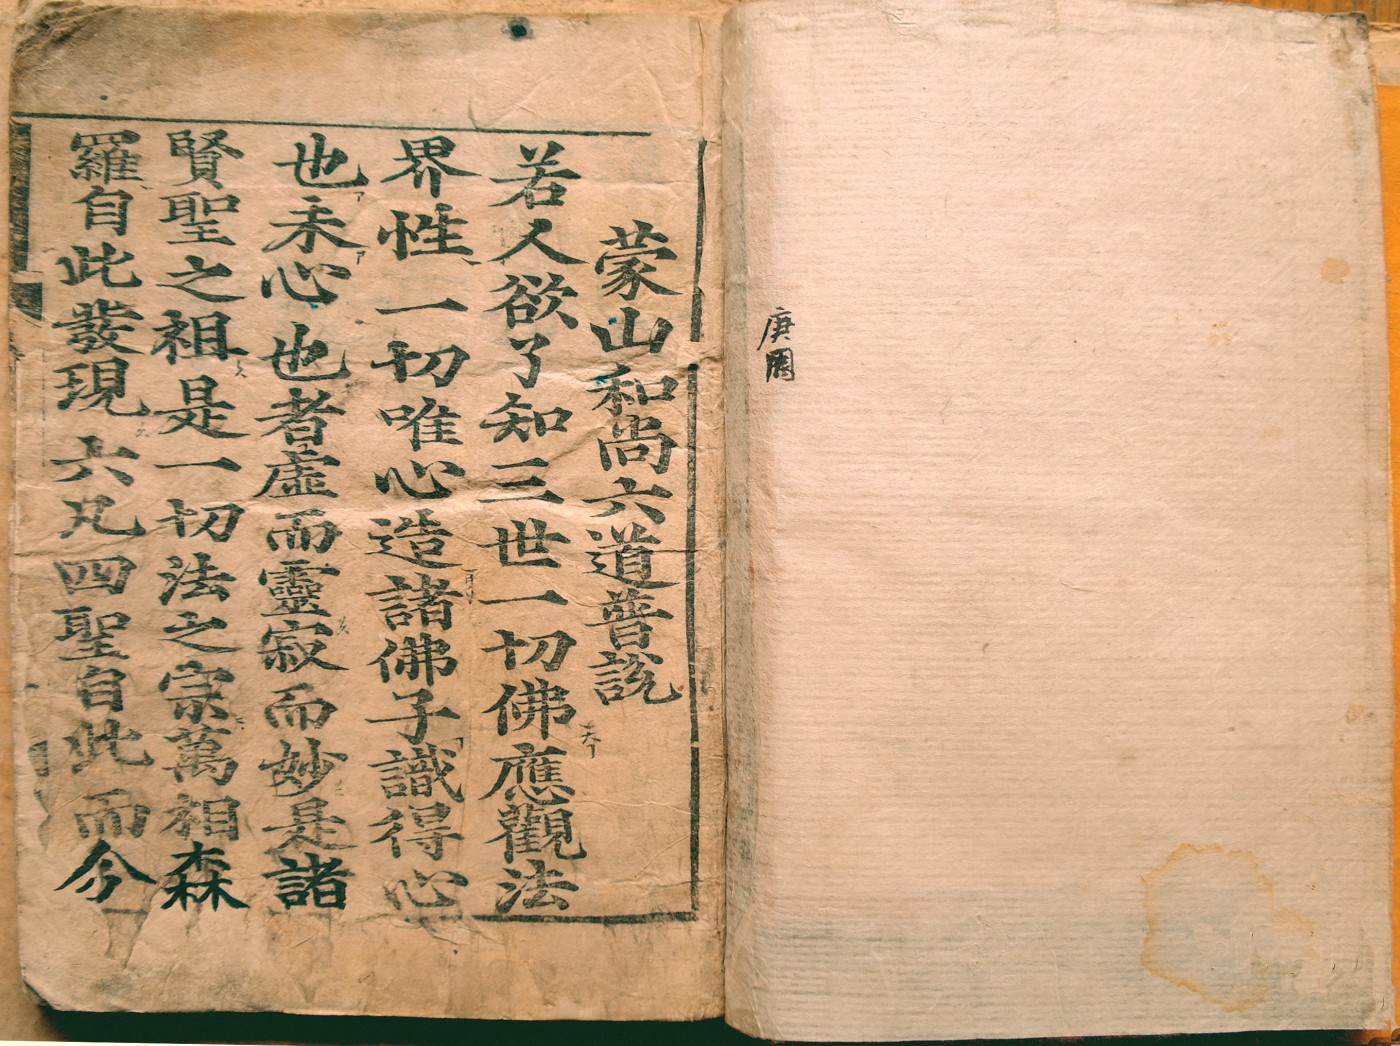 蒙山和尚六道普說
若人欲了知三世一切佛應觀法
界性一切唯心造諸佛子識得心
也未心也者虛而靈寂而妙是諸
賢聖之祖是一切法之宗萬相森
羅自此發現六凡四聖自此而今
庚